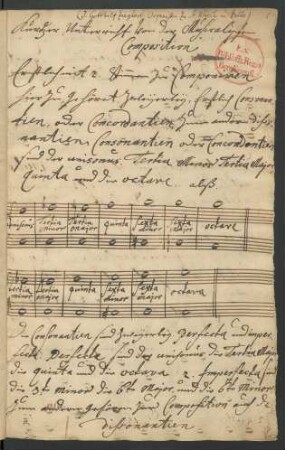 Kurtzer Unterricht von der Musicalischen
Composition
Erstlich mit 2 Stimen zu Componiren
hier zu gehöret Zweyerley, Erstlich Consonan
tien, oder Concordantien, Zum andern disso
nantien, Consonantien oder Concordantien
sind der unisonus, Tertia Minor Tertia Major
Quinta und die octave. alß.
unisonus Tertia minor Tertia major quinta Sexta minor Sexta major octave
tertia minor Tertia major quinta Sexta minor Sexta major octava
die Consonantien sind Zweyerley perfecta und imper
fecta perfecta sind der unisonus die Tertia Major
die quinta und die octava 2. Imperfecta sind
die 3t minor die 6t Major und die 6t Minor
Zum andern gehören zur Composition auch die
Dissonantien.